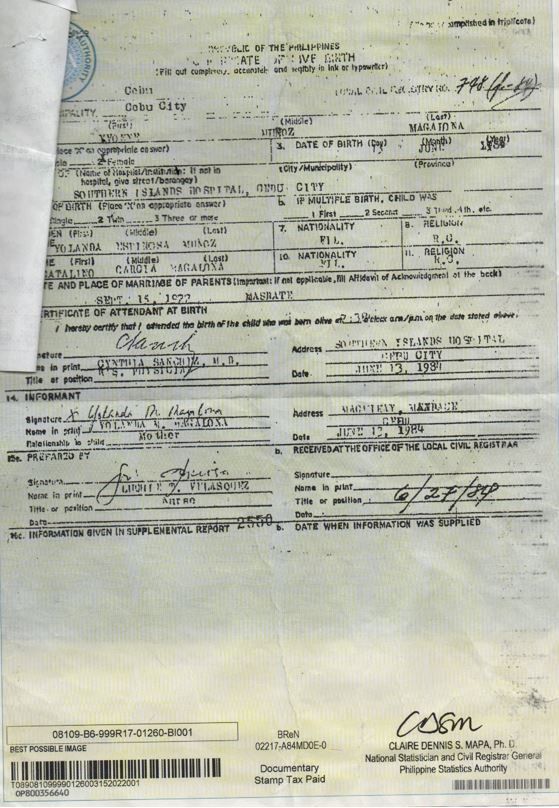 (To be accomplished in triplicate)
REPUBLIC OF THE PHILIPPINES
CERTIFICATE OF LIVE BIRTH
(Fill out completely, accurately and legibly in ink or typewriter)
AUTHORITY
Cebu
LOCAL CIVIL REGISTRY NO.
Cebu City
(First) (Middle) (Last)
MUÑOZ MAGALONA
3. DATE OF BIRTH (Day) (Month) (Year)
JUNE 1984
2 Female
(Name of Hospital/Institution: If not in hospital, give street/barangay)
(City/Municipality) (Province)
SOUTHERN ISLANDS HOSPITAL, CEBU CITY
OF BIRTH (Place 'X' on appropriate answer)
b. IF MULTIPLE BIRTH, CHILD WAS
2 Twin 3 Three or more
1 First 2 Second 3 Third, 4th, etc.
(First) (Middle) (Last)
7. NATIONALITY
8. RELIGION
YOLANDA ESPINOSA MUÑOZ
FIL.
R.C.
(First) (Middle) (Last)
10. NATIONALITY
11. RELIGION
MAGALONA
FIL.
R.C.
TE AND PLACE OF MARRIAGE OF PARENTS (Important: if not applicable, fill Affidavit of Acknowledgment at the back)
SEPT. 15, MASBATE
ERTIFICATE OF ATTENDANT AT BIRTH
I hereby certify that I attended the birth of the child who was born alive at o'clock a.m/p.m. on the date stated above:
Signature
Address SOUTHERN ISLANDS HOSPITAL
CEBU CITY
Name in print CYNTHIA SANCHEZ, M.D.
Title or position PHYSICIAN
Date JUNE 13, 1984
14. INFORMANT
Signature X Yolanda M. Magalona
Address
Name in print YOLANDA M. MAGALONA
CEBU
Relationship to child Mother
Date JUNE 13, 1984
PREPARED BY
b. RECEIVED AT THE OFFICE OF THE LOCAL CIVIL REGISTRAR
Signature
Signature
Name in print VELASQUEZ
Name in print
Title or position Nurse
Title or position : 6/27/84
Date
Date
INFORMATION GIVEN IN SUPPLEMENTAL REPORT 2550
b. DATE WHEN INFORMATION WAS SUPPLIED
08109-B6-999R17-01260-BI001
BEST POSSIBLE IMAGE
T089081099990126003152022001
0P800356640
BReN
02217-A84MD0E-0
Documentary
Stamp Tax Paid
CLAIRE DENNIS S. MAPA, Ph. D.
National Statistician and Civil Registrar General
Philippine Statistics Authority